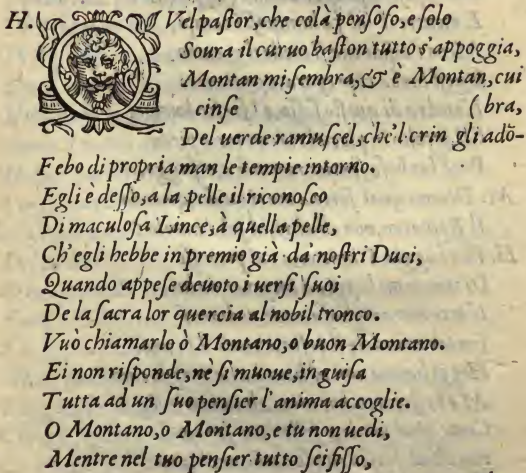 H. QVel pastor, che colà pensoso, e solo
Soura il curuo baston tutto s'appoggia,
Montan mi sembra, & è Montan, cui
cinse (bra,
Del uerde ramuscel, che'l crin gli adō-
Febo di propria man le tempie intorno.
Egli è desso, a la pelle il riconosco
Di maculosa Lince, à quella pelle,
Ch'egli hebbe in premio già da' nostri Duci,
Quando appese deuoto i uersi suoi
De la sacra lor quercia al nobil tronco.
Vuò chiamarlo ò Montano, o buon Montano.
Ei non risponde, nè si muoue, in guisa
Tutta ad un suo pensier l'anima accoglie.
O Montano, o Montano, e tu non uedi,
Mentre nel tuo pensier tutto sei fisso,